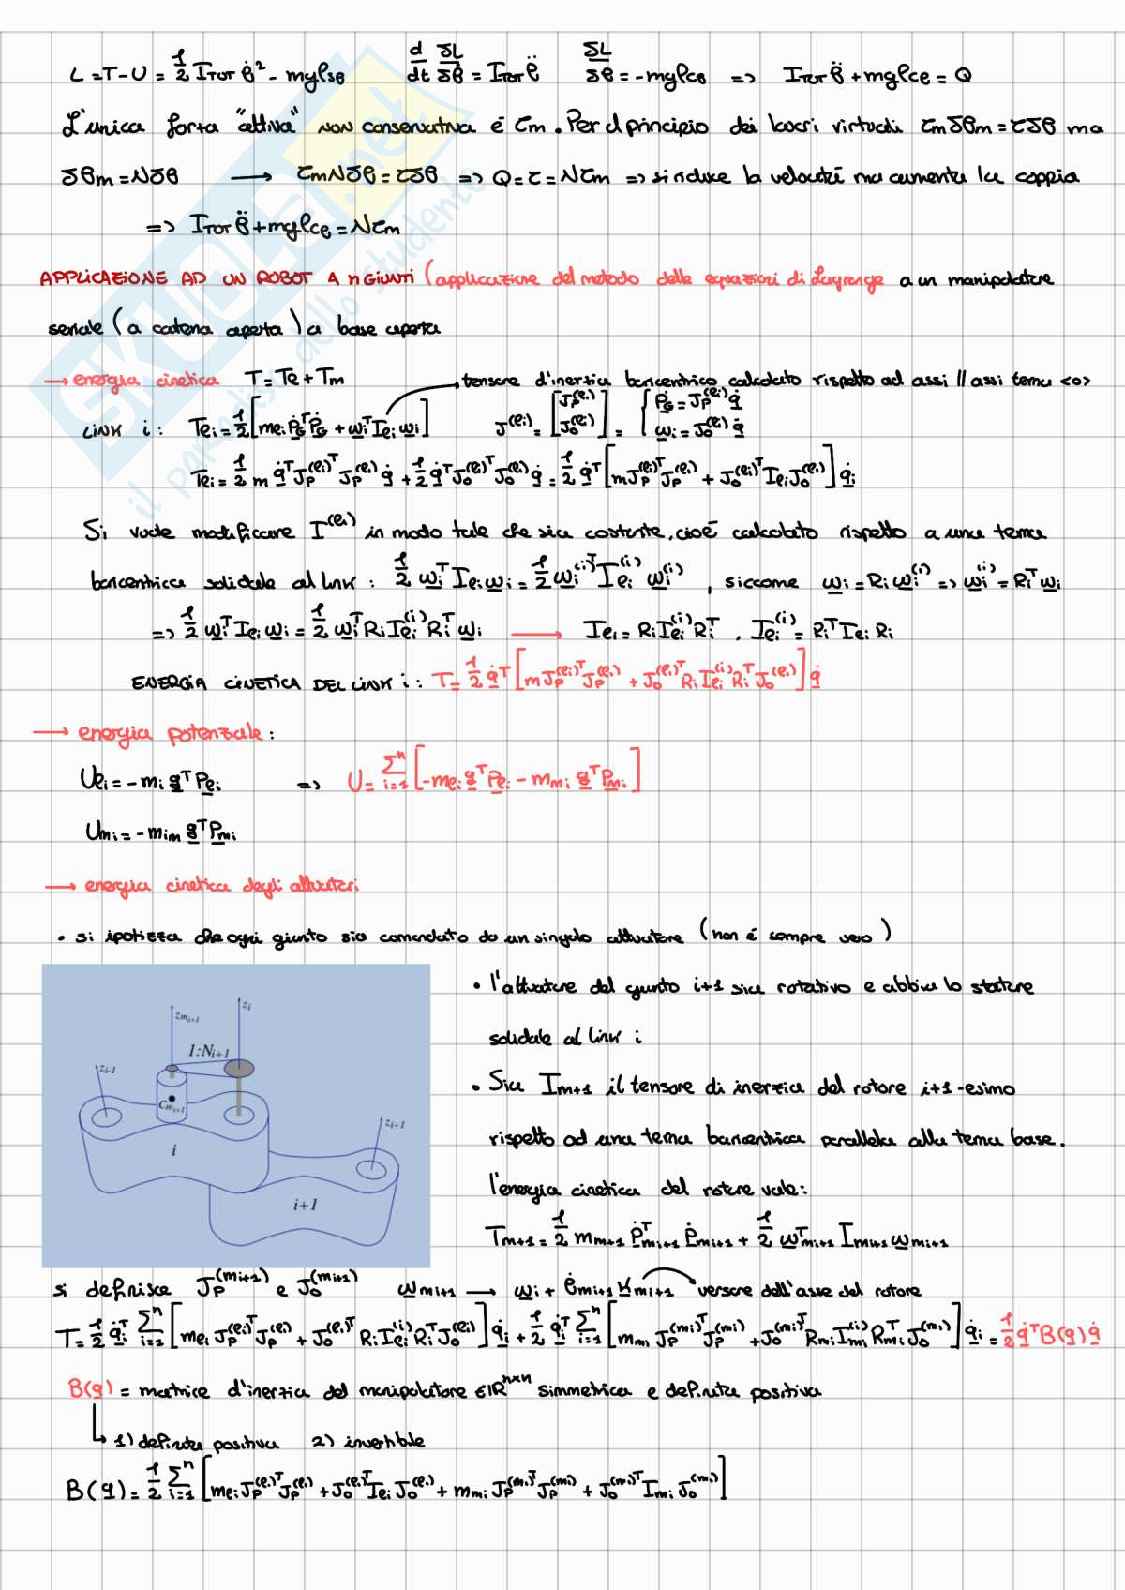 L = T-U = 1/2 I_TOT θ̇² - mglsθ   d/dt δL/δθ̇ = I_TOT θ̈   δL/δθ = -mglcθ => I_TOT θ̈ + mglcθ = Q
L'unica forza "attiva" non conservativa è τm. Per il principio dei lavori virtuali τmδθm = τδθ ma
δθm = Nδθ → τmNδθ = τδθ => Q = τ = Nτm => si riduce la velocità ma aumenta la coppia
=> I_TOT θ̈ + mglcθ = Nτm
APPLICAZIONE AD UN ROBOT A n GIUNTI (applicazione del metodo delle equazioni di Lagrange a un manipolatore
seriale (a catena aperta) a base aperta
→ energia cinetica T = Te + Tm → tensore d'inerzia baricentrico calcolato rispetto ad assi // assi terna <0>
LINK i: Tei = 1/2 [mei ṗGᵀ ṗG + ωiᵀ Iei ωi]   J^(ei) = [Jp^(ei) J0^(ei)] = { ṗG = Jp^(ei) q̇
ωi = J0^(ei) q̇
Tei = 1/2 m q̇ᵀ Jp^(ei)ᵀ Jp^(ei) q̇ + 1/2 q̇ᵀ J0^(ei)ᵀ J0^(ei) q̇ = 1/2 q̇ᵀ [m Jp^(ei)ᵀ Jp^(ei) + J0^(ei)ᵀ Iei J0^(ei)] q̇i
Si vuole modificare I^(ei) in modo tale che sia costante, cioè calcolato rispetto a una terna
baricentrica solidale al link: 1/2 ωiᵀ Iei ωi = 1/2 ωi^(i)ᵀ Iei^(i) ωi^(i), siccome ωi = Ri ωi^(i) => ωi^(i) = Riᵀ ωi
=> 1/2 ωiᵀ Iei ωi = 1/2 ωiᵀ Ri Iei^(i) Riᵀ ωi → Iei = Ri Iei^(i) Riᵀ, Iei^(i) = Riᵀ Iei Ri
ENERGIA CINETICA DEL LINK i: T = 1/2 q̇ᵀ [m Jp^(ei)ᵀ Jp^(ei) + J0^(ei)ᵀ Ri Iei^(i) Riᵀ J0^(ei)] q̇
→ energia potenziale:
Uei = -mi gᵀ Pei => U = Σ i=1 n [-mei gᵀ Pei - mmi gᵀ Pmi]
Umi = -mim gᵀ Pmi
→ energia cinetica degli attuatori
• si ipotizza che ogni giunto sia comandato da un singolo attuatore (non è sempre vero)
• l'attuatore del giunto i+1 sia rotativo e abbia lo statore
solidale al link i
• Sia Im+1 il tensore di inerzia del rotore i+1-esimo
rispetto ad una terna baricentrica parallela alla terna base.
l'energia cinetica del rotore vale:
Tm+1 = 1/2 mm+1 Ṗmi+1ᵀ Ṗmi+1 + 1/2 ωmi+1ᵀ Imi+1 ωmi+1
z_i
z_mi+1
1:Ni+1
z_i-1
Cmi+1
z_i+1
i
i+1
si definisce Jp^(mi+1) e J0^(mi+1)   ωmi+1 → ωi + θ̇mi+1 Kmi+1 versore dell'asse del rotore
T = 1/2 q̇iᵀ Σ i=1 n [mei Jp^(ei)ᵀ Jp^(ei) + J0^(ei)ᵀ Ri Iei^(i) Riᵀ J0^(ei)] q̇i + 1/2 q̇iᵀ Σ i=1 n [mm Jp^(mi)ᵀ Jp^(mi) + J0^(mi)ᵀ Rmi Imi^(i) Rmiᵀ J0^(mi)] q̇i = 1/2 q̇ᵀ B(q) q̇
B(q) = matrice d'inerzia del manipolatore ∈ ℝⁿˣⁿ simmetrica e definita positiva
↳ 1) definita positiva 2) invertibile
B(q) = 1/2 Σ i=1 n [mei Jp^(ei)ᵀ Jp^(ei) + J0^(ei)ᵀ Iei J0^(ei) + mmi Jp^(mi)ᵀ Jp^(mi) + J0^(mi)ᵀ Imi J0^(mi)]
SKUOLA.net
il paradiso dello studente